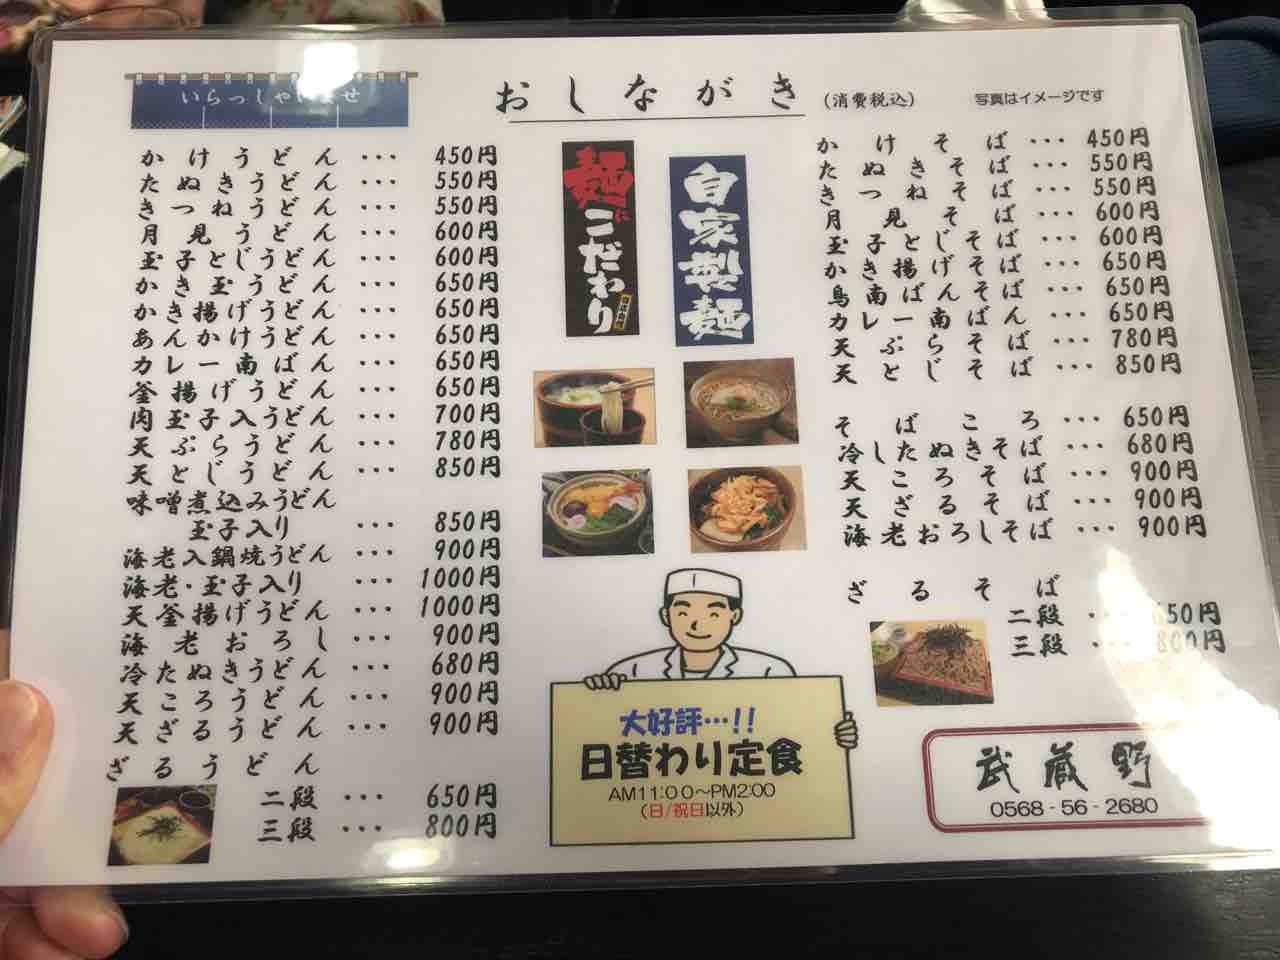 いらっしゃいませ
おしながき
(消費税込)
写真はイメージです
かけうどん ･･･ 450円
たぬきうどん ･･･ 550円
きつねうどん ･･･ 550円
月見うどん ･･･ 600円
玉子とじうどん ･･･ 600円
かき玉うどん ･･･ 650円
かき揚げうどん ･･･ 650円
あんかけうどん ･･･ 650円
カレー南ばん ･･･ 650円
釜揚げうどん ･･･ 650円
肉玉子入うどん ･･･ 700円
天ぷらうどん ･･･ 780円
天とじうどん ･･･ 850円
味噌煮込みうどん
玉子入り ･･･ 850円
海老入鍋焼うどん ･･･ 900円
海老・玉子入り ･･･ 1000円
天釜揚げうどん ･･･ 1000円
海老おろし ･･･ 900円
冷たぬきうどん ･･･ 680円
天ころうどん ･･･ 900円
天ざるうどん ･･･ 900円
ざるうどん
二段 ･･･ 650円
三段 ･･･ 800円
麺にこだわり
自家製麺
大好評…!!
日替わり定食
AM11:00〜PM2:00
(日/祝日以外)
かけそば ･･･ 450円
たぬきそば ･･･ 550円
きつねそば ･･･ 550円
月見そば ･･･ 600円
玉子とじそば ･･･ 600円
かき揚げそば ･･･ 650円
鳥南ばんそば ･･･ 650円
カレー南ばん ･･･ 650円
天ぷらそば ･･･ 780円
天とじそば ･･･ 850円
そばころ ･･･ 650円
冷したぬきそば ･･･ 680円
天ころそば ･･･ 900円
天ざるそば ･･･ 900円
海老おろしそば ･･･ 900円
ざるそば
二段 ･･･ 650円
三段 ･･･ 800円
武蔵野
0568-56-2680